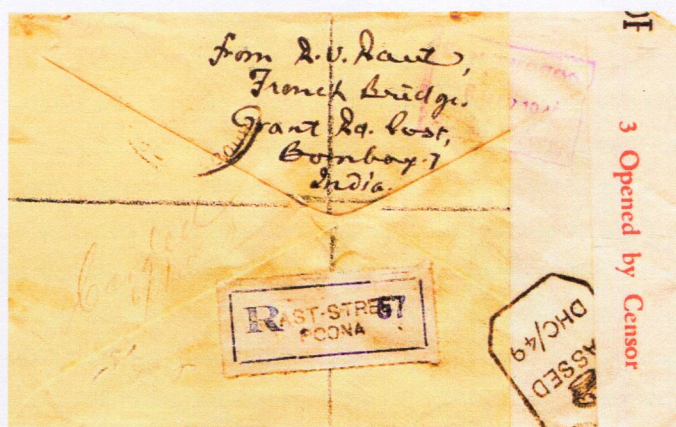 from R. V. Raut,
French Bridge.
Grant Rd. Post,
Bombay. 7
India.
R
AST-STREET 57
POONA
3 Opened by Censor
ASSED
DHC/49